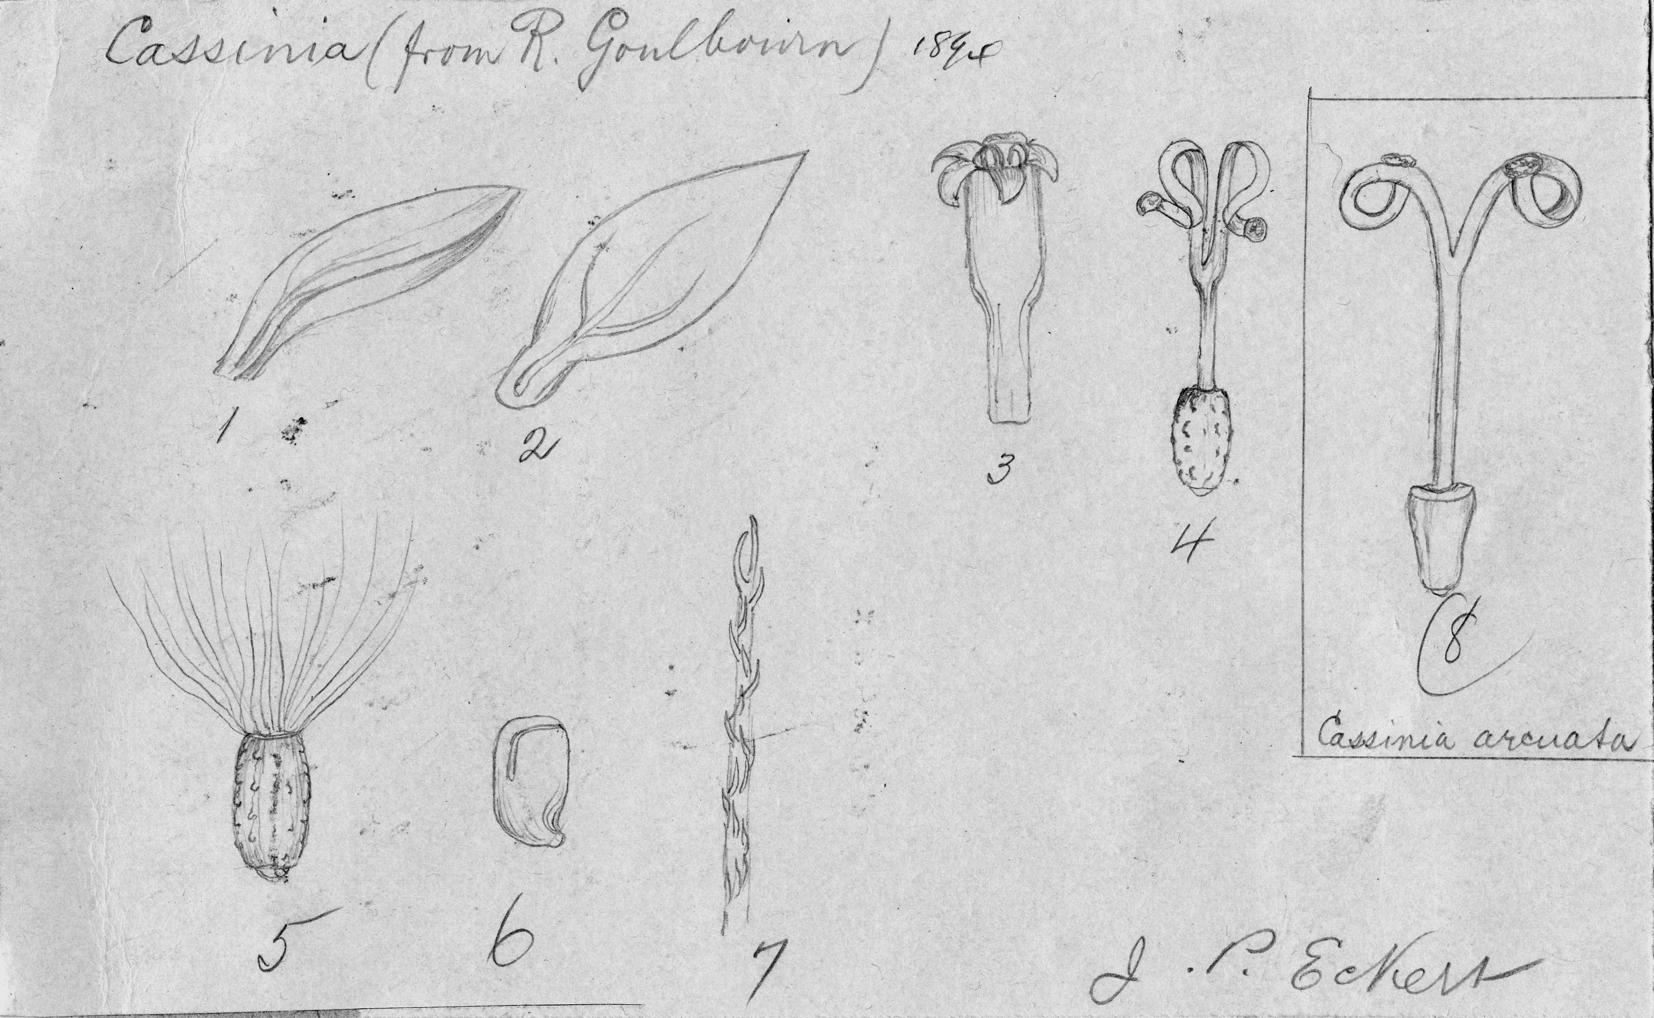 Cassinia (from R. Goulbourn)
1
2
3
4
8
Cassinia arcuata
5
6
7
J. P. Eckert